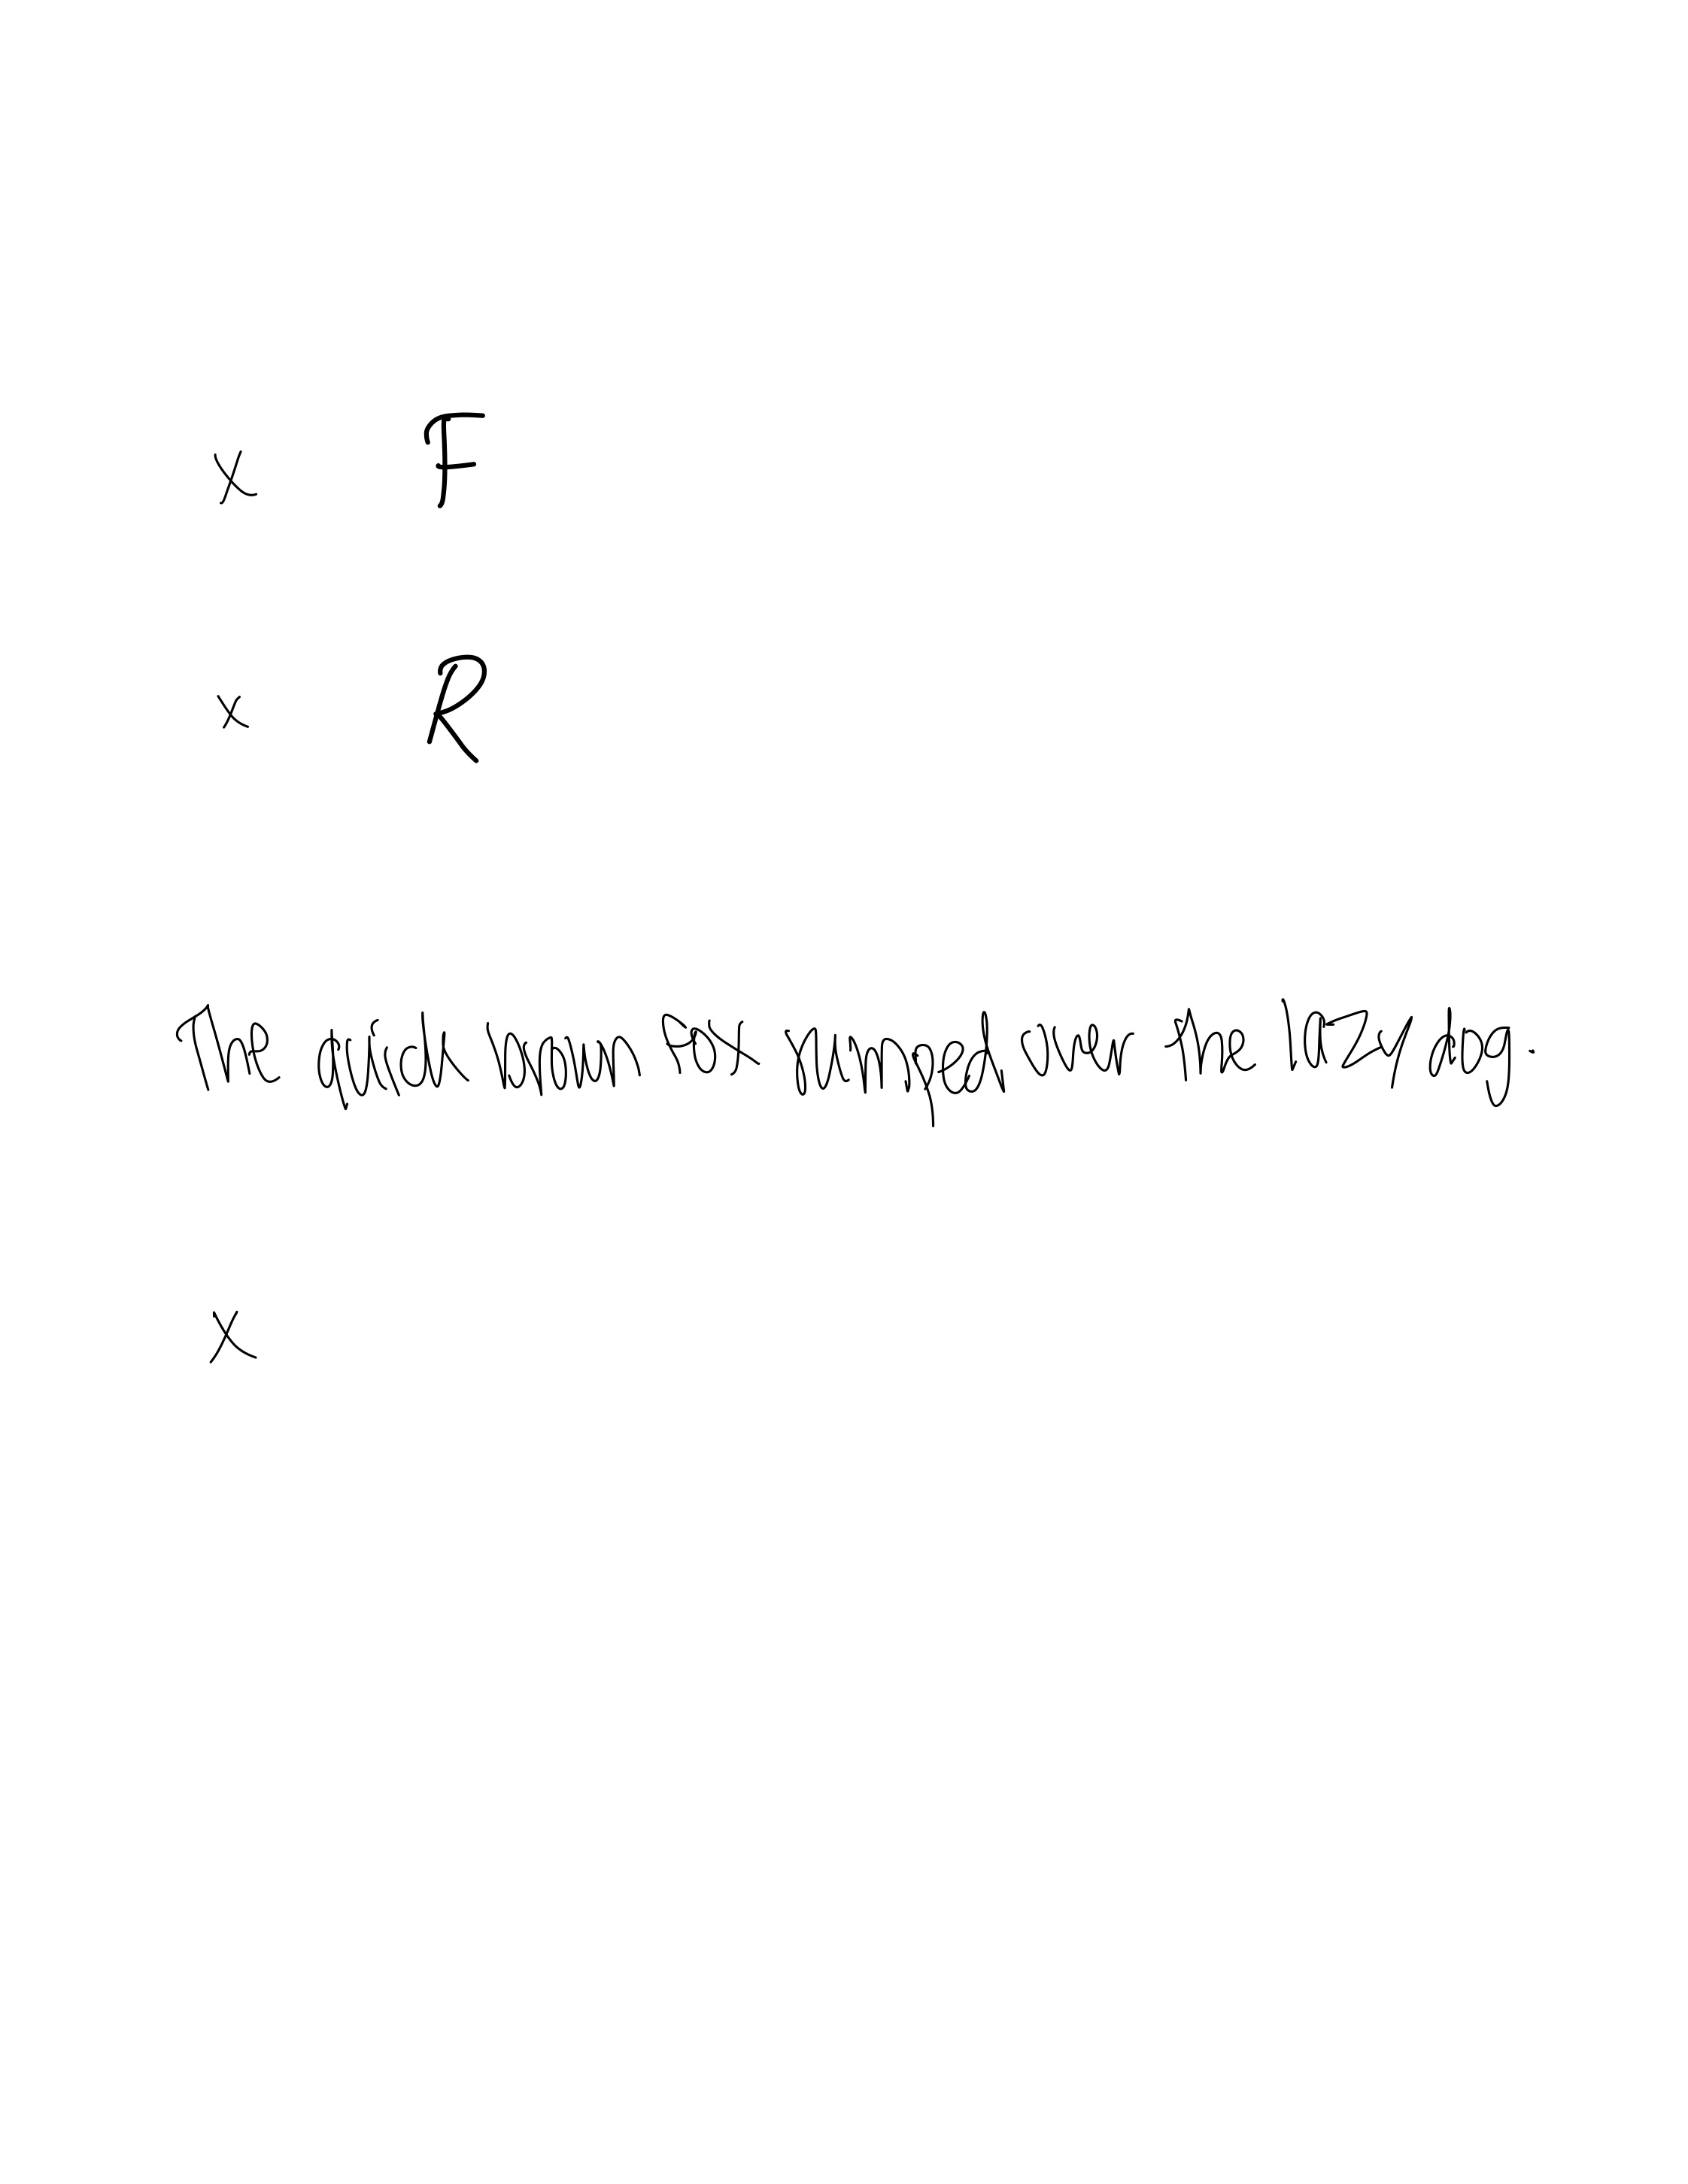 x F
x R
The quick brown fox jumped over the lazy dog.
x